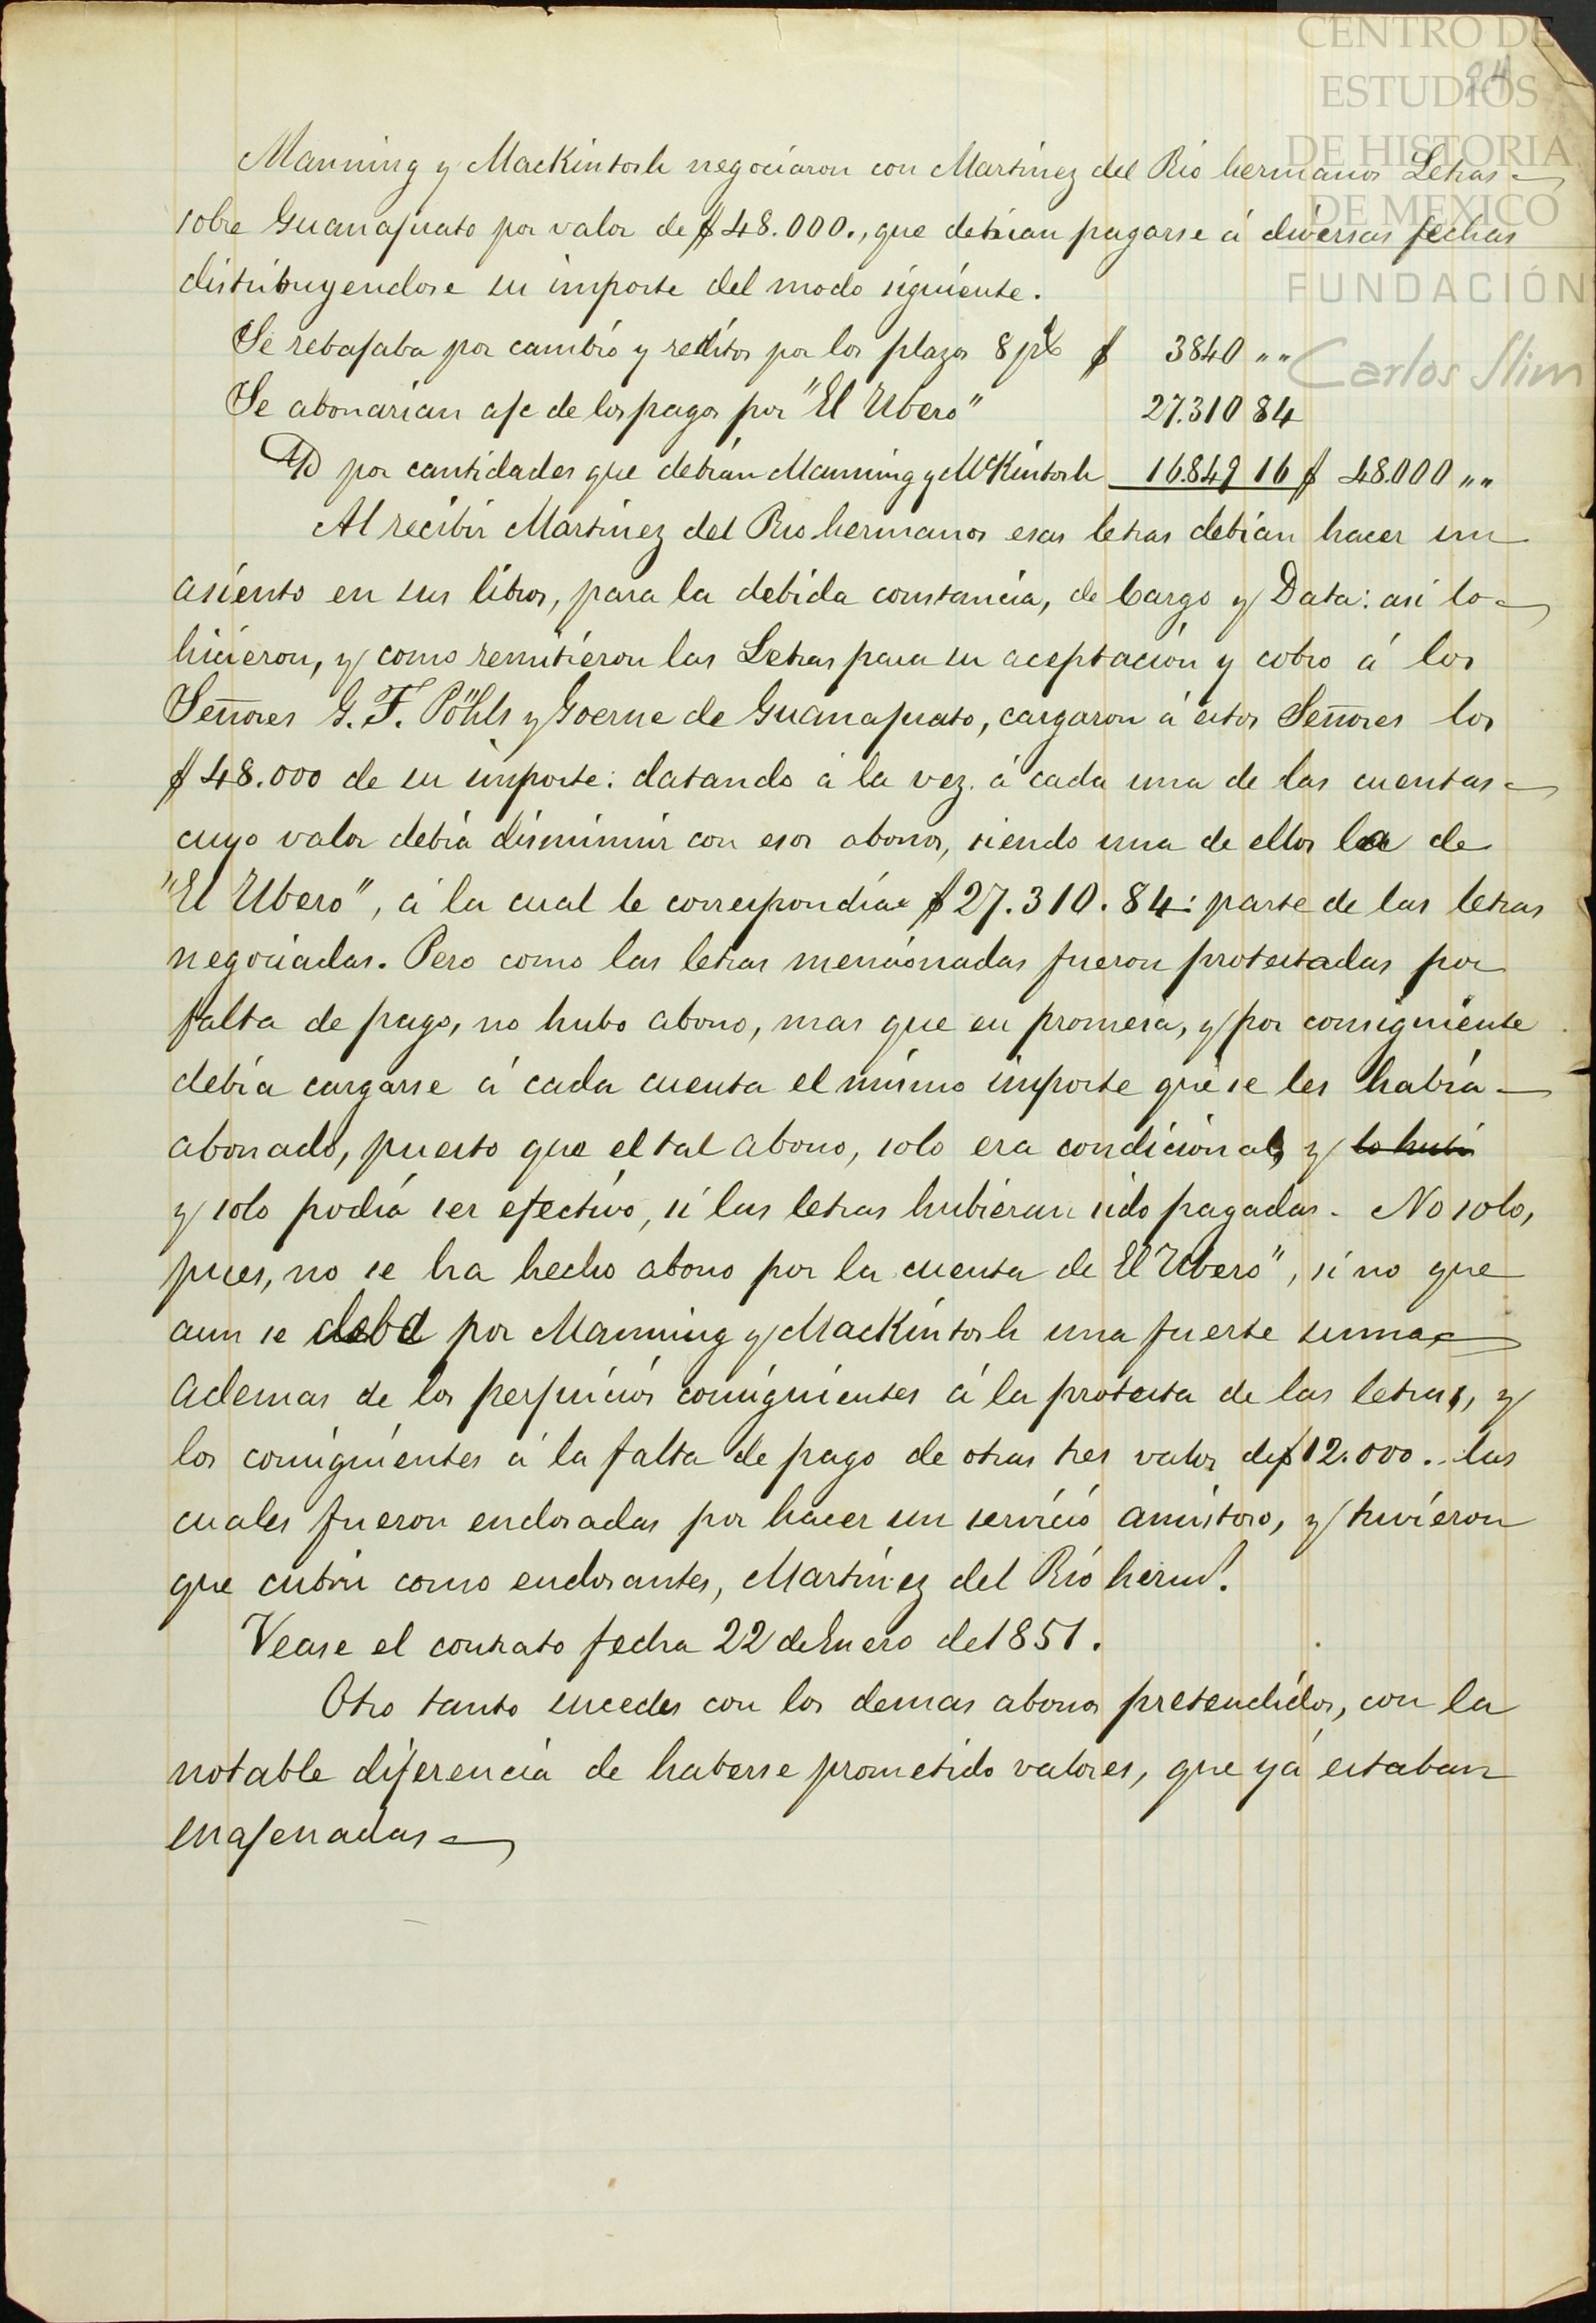 CENTRO DE
ESTUDIOS
DE HISTORIA
DE MEXICO
FUNDACIÓN
Carlos Slim
24
Manning y MacKintosh negociaron con Martinez del Rio hermanos Letras
sobre Guanajuato por valor de $48.000., que debian pagarse á diversas fechas
distribuyendose su importe del modo siguiente.
Se rebajaba por cambio y reditos por los plazos 8 p% $ 3840 " "
Se abonarian a/c de los pagos por "El Ubero" 27.310 84
ID por cantidades que debian Manning y McKintosh 16.849 16 $ 48.000 " "
Al recibir Martinez del Rio hermanos esas letras debian hacer un
asiento en sus libros, para la debida constancia, de Cargo y Data: asi lo
hicieron, y como remitieron las Letras para su aceptacion y cobro á los
Señores G. F. Pöhls y Goerne de Guanajuato, cargaron á estos Señores los
$48.000 de su importe: datando á la vez. á cada una de las cuentas
cuyo valor debia disminuir con esos abonos, siendo una de ellos la de
"El Ubero", á la cual le correspondia $27.310.84: parte de las letras
negociadas. Pero como las letras mencionadas fueron protestadas por
falta de pago, no hubo abono, mas que en promesa, y por consiguiente
debia cargarse á cada cuenta el mismo importe que se les habia
abonado, puesto que el tal abono, solo era condicional, y lo hubi
y solo podia ser efectivo, si las letras hubieran sido pagadas. No solo,
pues, no se ha hecho abono por la cuenta de El Ubero", si no que
aun se debe por Manning y MacKintosh una fuerte suma
Ademas de los perjuicios consiguientes á la protesta de las letras, y
los consiguientes á la falta de pago de otras tres valor de $12.000. las
cuales fueron endosadas por hacer un servicio amistoso, y tuvieron
que cubrir como endosantes, Martinez del Rio herms.
Vease el contrato fecha 22 de Enero de 1851.
Otro tanto sucede con los demas abonos pretendidos, con la
notable diferencia de haberse prometido valores, que yá estaban
enajenadas